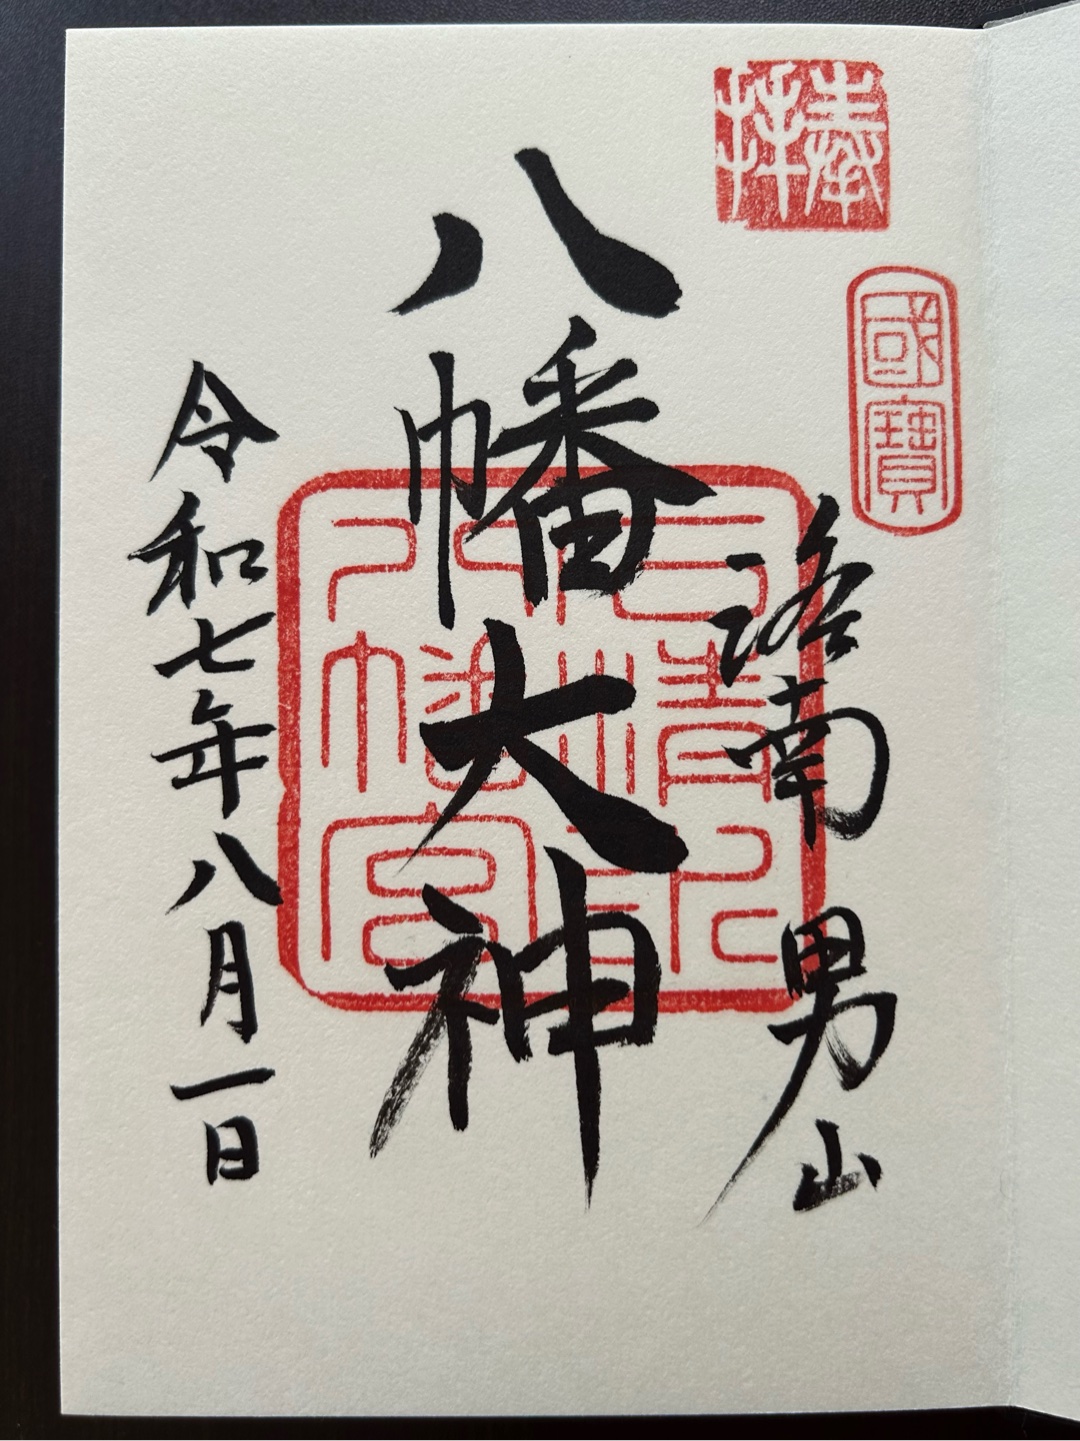 奉拝
國寶
洛南 男山
八幡大神
石清水八幡宮
令和七年八月一日